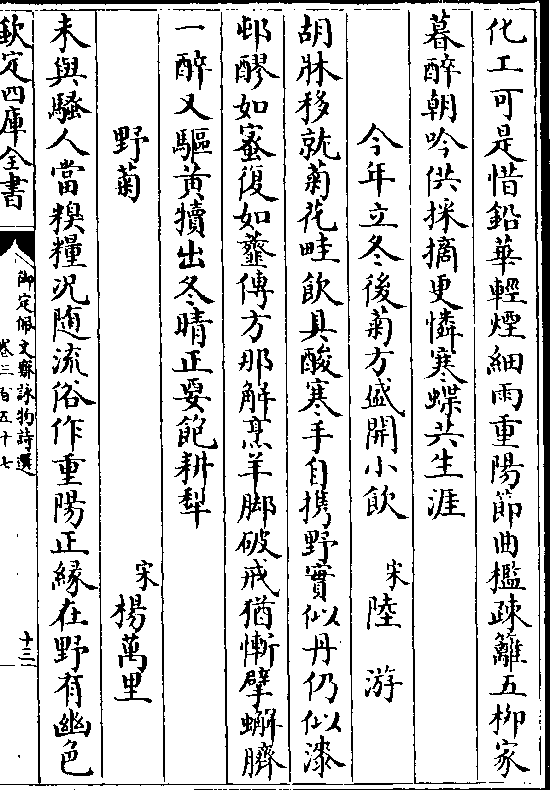 化工可是惜鉛華輕煙細雨重陽節曲檻疎籬五柳家
暮醉朝吟供採摘更憐寒蝶共生涯
今年立冬後菊方盛開小飲 宋 陸游
胡牀移就菊花畦飲具酸寒手自携野實似丹仍似漆
邨醪如蜜復如虀傳方那解烹羊脚破戒猶慚擘蠏臍
一醉又驅黃犢出冬晴正要飽耕犁
野菊 宋 楊萬里
未與騷人當糗糧况随流俗作重陽正緣在野有幽色
欽定四庫全書
御定佩文齋詠物詩選
卷三百五十七
十三